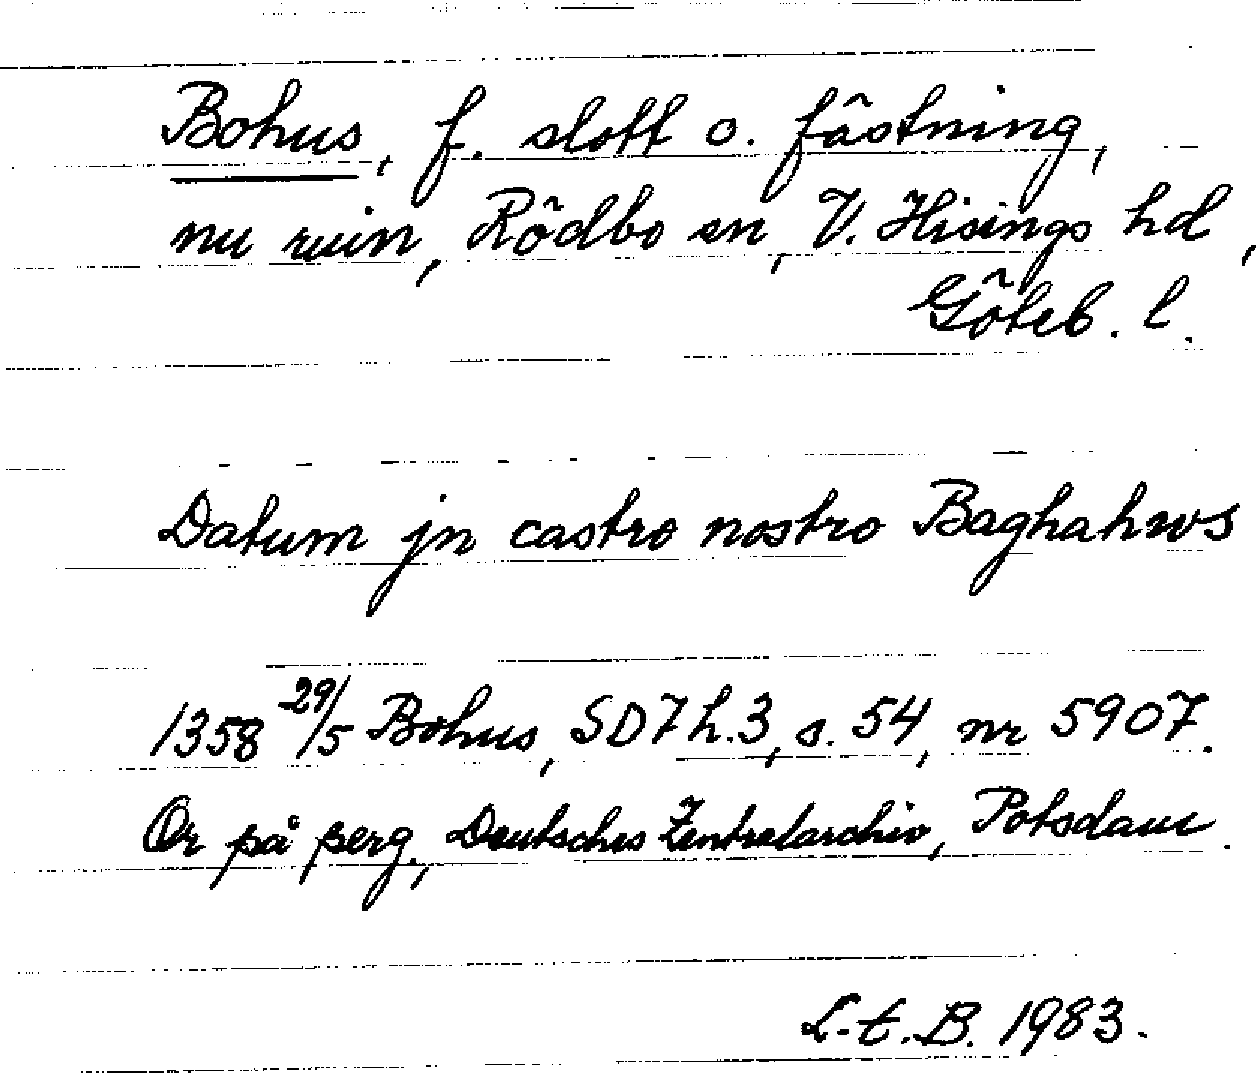 Bohus, f. slott o. fästning,
nu ruin, Rödbo sn, V. Hisings hd,
Göteb. l.
Datum jn castro nostro Baghahws
1358 29/5 Bohus, SD7 h.3, s. 54, nr 5907.
Or på perg., Deutsches Zentralarchiv, Potsdam.
L.t.B. 1983.